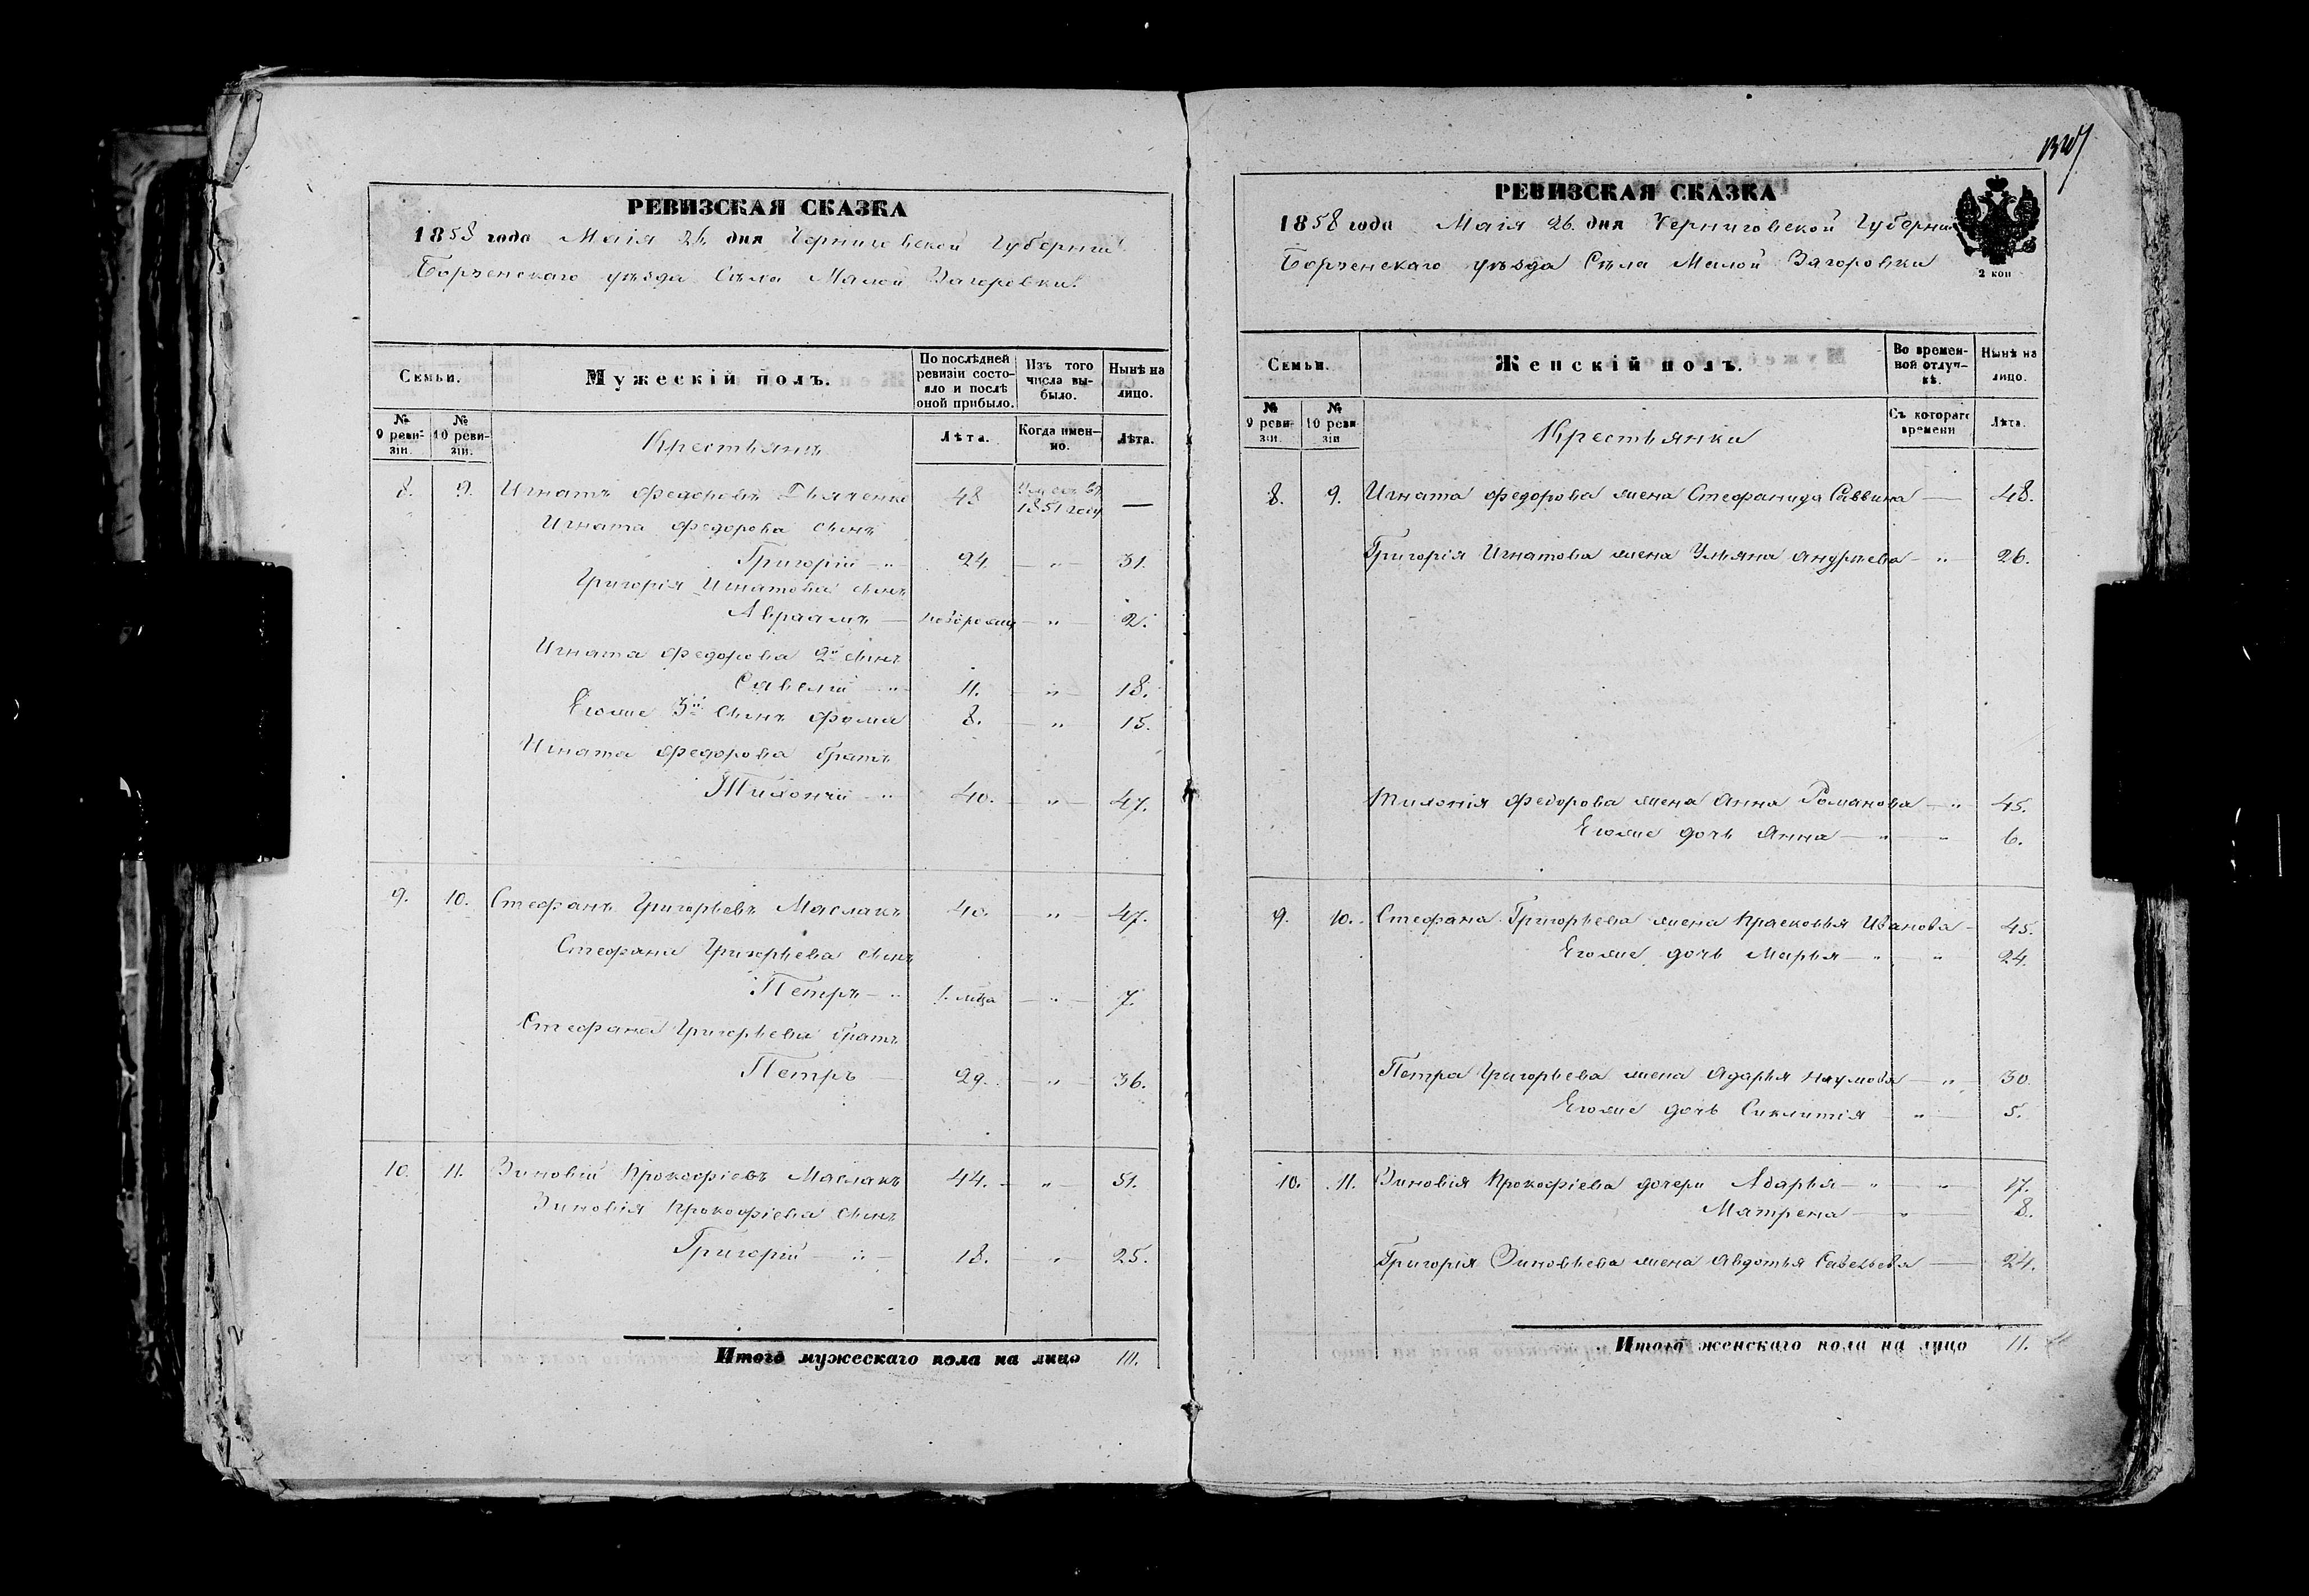 РЕВИЗСКАЯ СКАЗКА
1858 года Маія 26 дня Черниговской Губерніи
Борзенскаго уѣзда Села Малой Загоровки.
Семьи.
Мужескій полъ.
По послѣдней ревизіи состояло и послѣ оной прибыло.
Изъ того числа выбыло.
Нынѣ на лицо.
№ 9 ревизіи.
№ 10 ревизіи.
Крестьянъ
Лѣта.
Когда именно.
Лѣта.
8. 9. Игнатъ Федоровъ Дьяченко 48 1851 году —
Игната Федорова сынъ
Григорій — " 24. — " — 31.
Григорія Игнатова сынъ
Авраамъ — новорожд. — " — 2.
Игната Федорова 2й сынъ
Савелій — " 11. — " — 18.
Егоже 3й сынъ Фома 8. — " 15.
Игната Федорова братъ
Тихоній — " 40. — " — 47.
9. 10. Стефанъ Григорьевъ Маслакъ 40. — " — 47.
Стефана Григорьева сынъ
Петръ — " 1. мѣца — " — 7.
Стефана Григорьева братъ
Петръ — 29. — " — 36.
10. 11. Зиновій Прокофіевъ Маслакъ 44. — " — 51.
Зиновія Прокофіева сынъ
Григорій — " — 18. — " — 25.
Итого мужескаго пола на лицо 10.
РЕВИЗСКАЯ СКАЗКА
1858 года Маія 26. дня Черниговской Губерніи
Борзенскаго уѣзда Села Малой Загоровки
2 коп
Семьи.
Женскій полъ.
Во временной отлучкѣ.
Нынѣ на лицо.
№ 9 ревизіи.
№ 10 ревизіи
Крестьянки
Съ котораго времени
Лѣта.
8. 9. Игната Федорова жена Стефанида Саввина — 48.
Григорія Игнатова жена Ульяна Андреева — " — 26.
Тихонія Федорова жена Анна Романова — " 45.
Егоже дочь Анна — " — " 6.
9. 10. Стефана Григорьева жена Прасковья Иванова — 45.
Егоже дочь Марья — " — " 24.
Петра Григорьева жена Адарья Наумова — " — 30.
Егоже дочь Синклитія " — 5.
10. 11. Зиновія Прокофіева дочери Адарья — " — " 17.
Матрена — " — 8.
Григорія Зиновьева жена Авдотья Савельева — 24.
Итого женскаго пола на лицо 11.